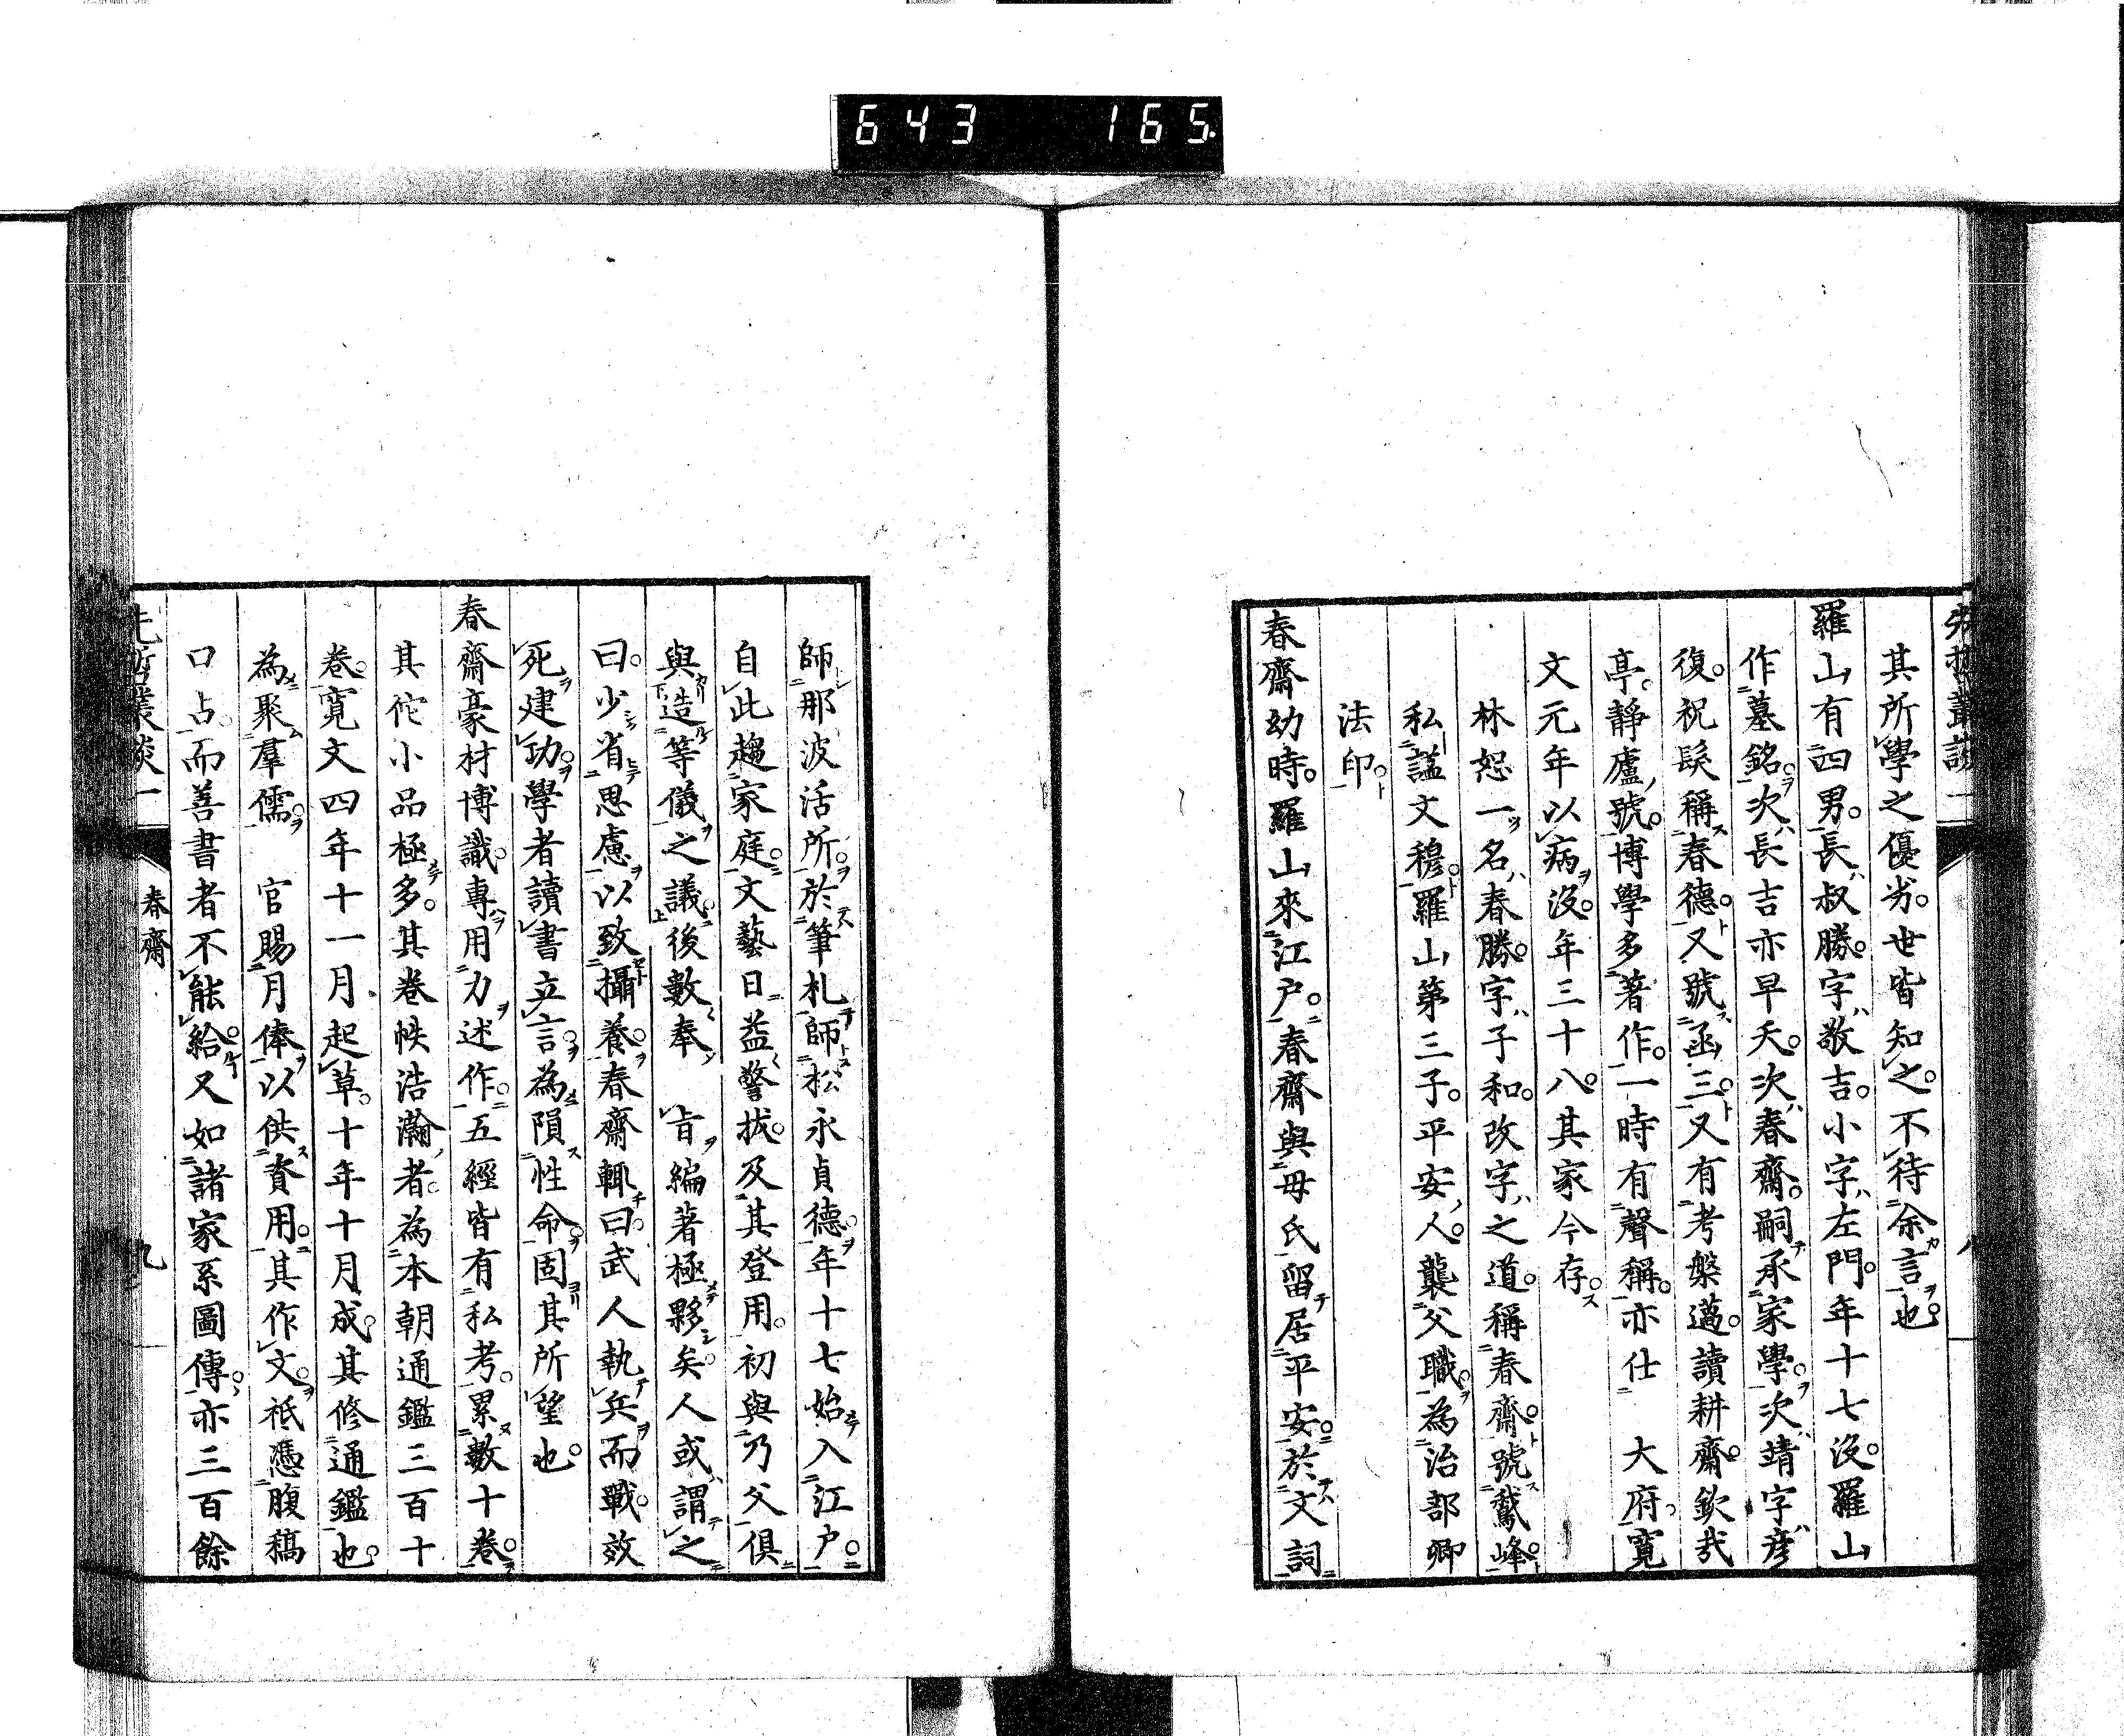 643 165
先哲叢談一
八
其所學之優劣。世皆知之。不待余言也。
羅山有四男。長叔勝。字敬吉。小字左門。年十七沒。羅山
作墓銘。次長吉亦早夭。次春齋。嗣承家學。次靖字彥
復。祝髮稱春德。又號函三。又有考槃邁。讀耕齋。欽哉
亭。靜廬號。博學多著作。一時有聲稱。亦仕 大府。寬
文元年以病沒。年三十八。其家今存。
林恕一名春勝。字子和。改字之道。稱春齋。號鵞峰。
私謚文穆。羅山第三子。平安人。襲父職。為治部卿
法印。
春齋幼時。羅山來江戶。春齋與母氏留居平安。於文詞
師那波活所。於筆札師松永貞德。年十七始入江戶。
自此趨家庭。文藝日益警拔。及其登用。初與乃父俱
與造等儀之議。後數奉 旨編著極夥矣。人或謂之
曰。少省思慮以致攝養。春齋輒曰。武人執兵而戰。效
死建功。學者讀書立言。為隕性命。固其所望也。
春齋豪材博識。專用力述作。五經皆有私考。累數十卷。
其佗小品極多。其卷帙浩瀚者。為本朝通鑑三百十
卷。寬文四年十一月起草。十年十月成。其修通鑑也。
為聚羣儒。 官賜月俸以供資用。其作文。祗憑腹稿
口占。而善書者不能給。又如諸家系圖傳。亦三百餘
先哲叢談一
春齋
九